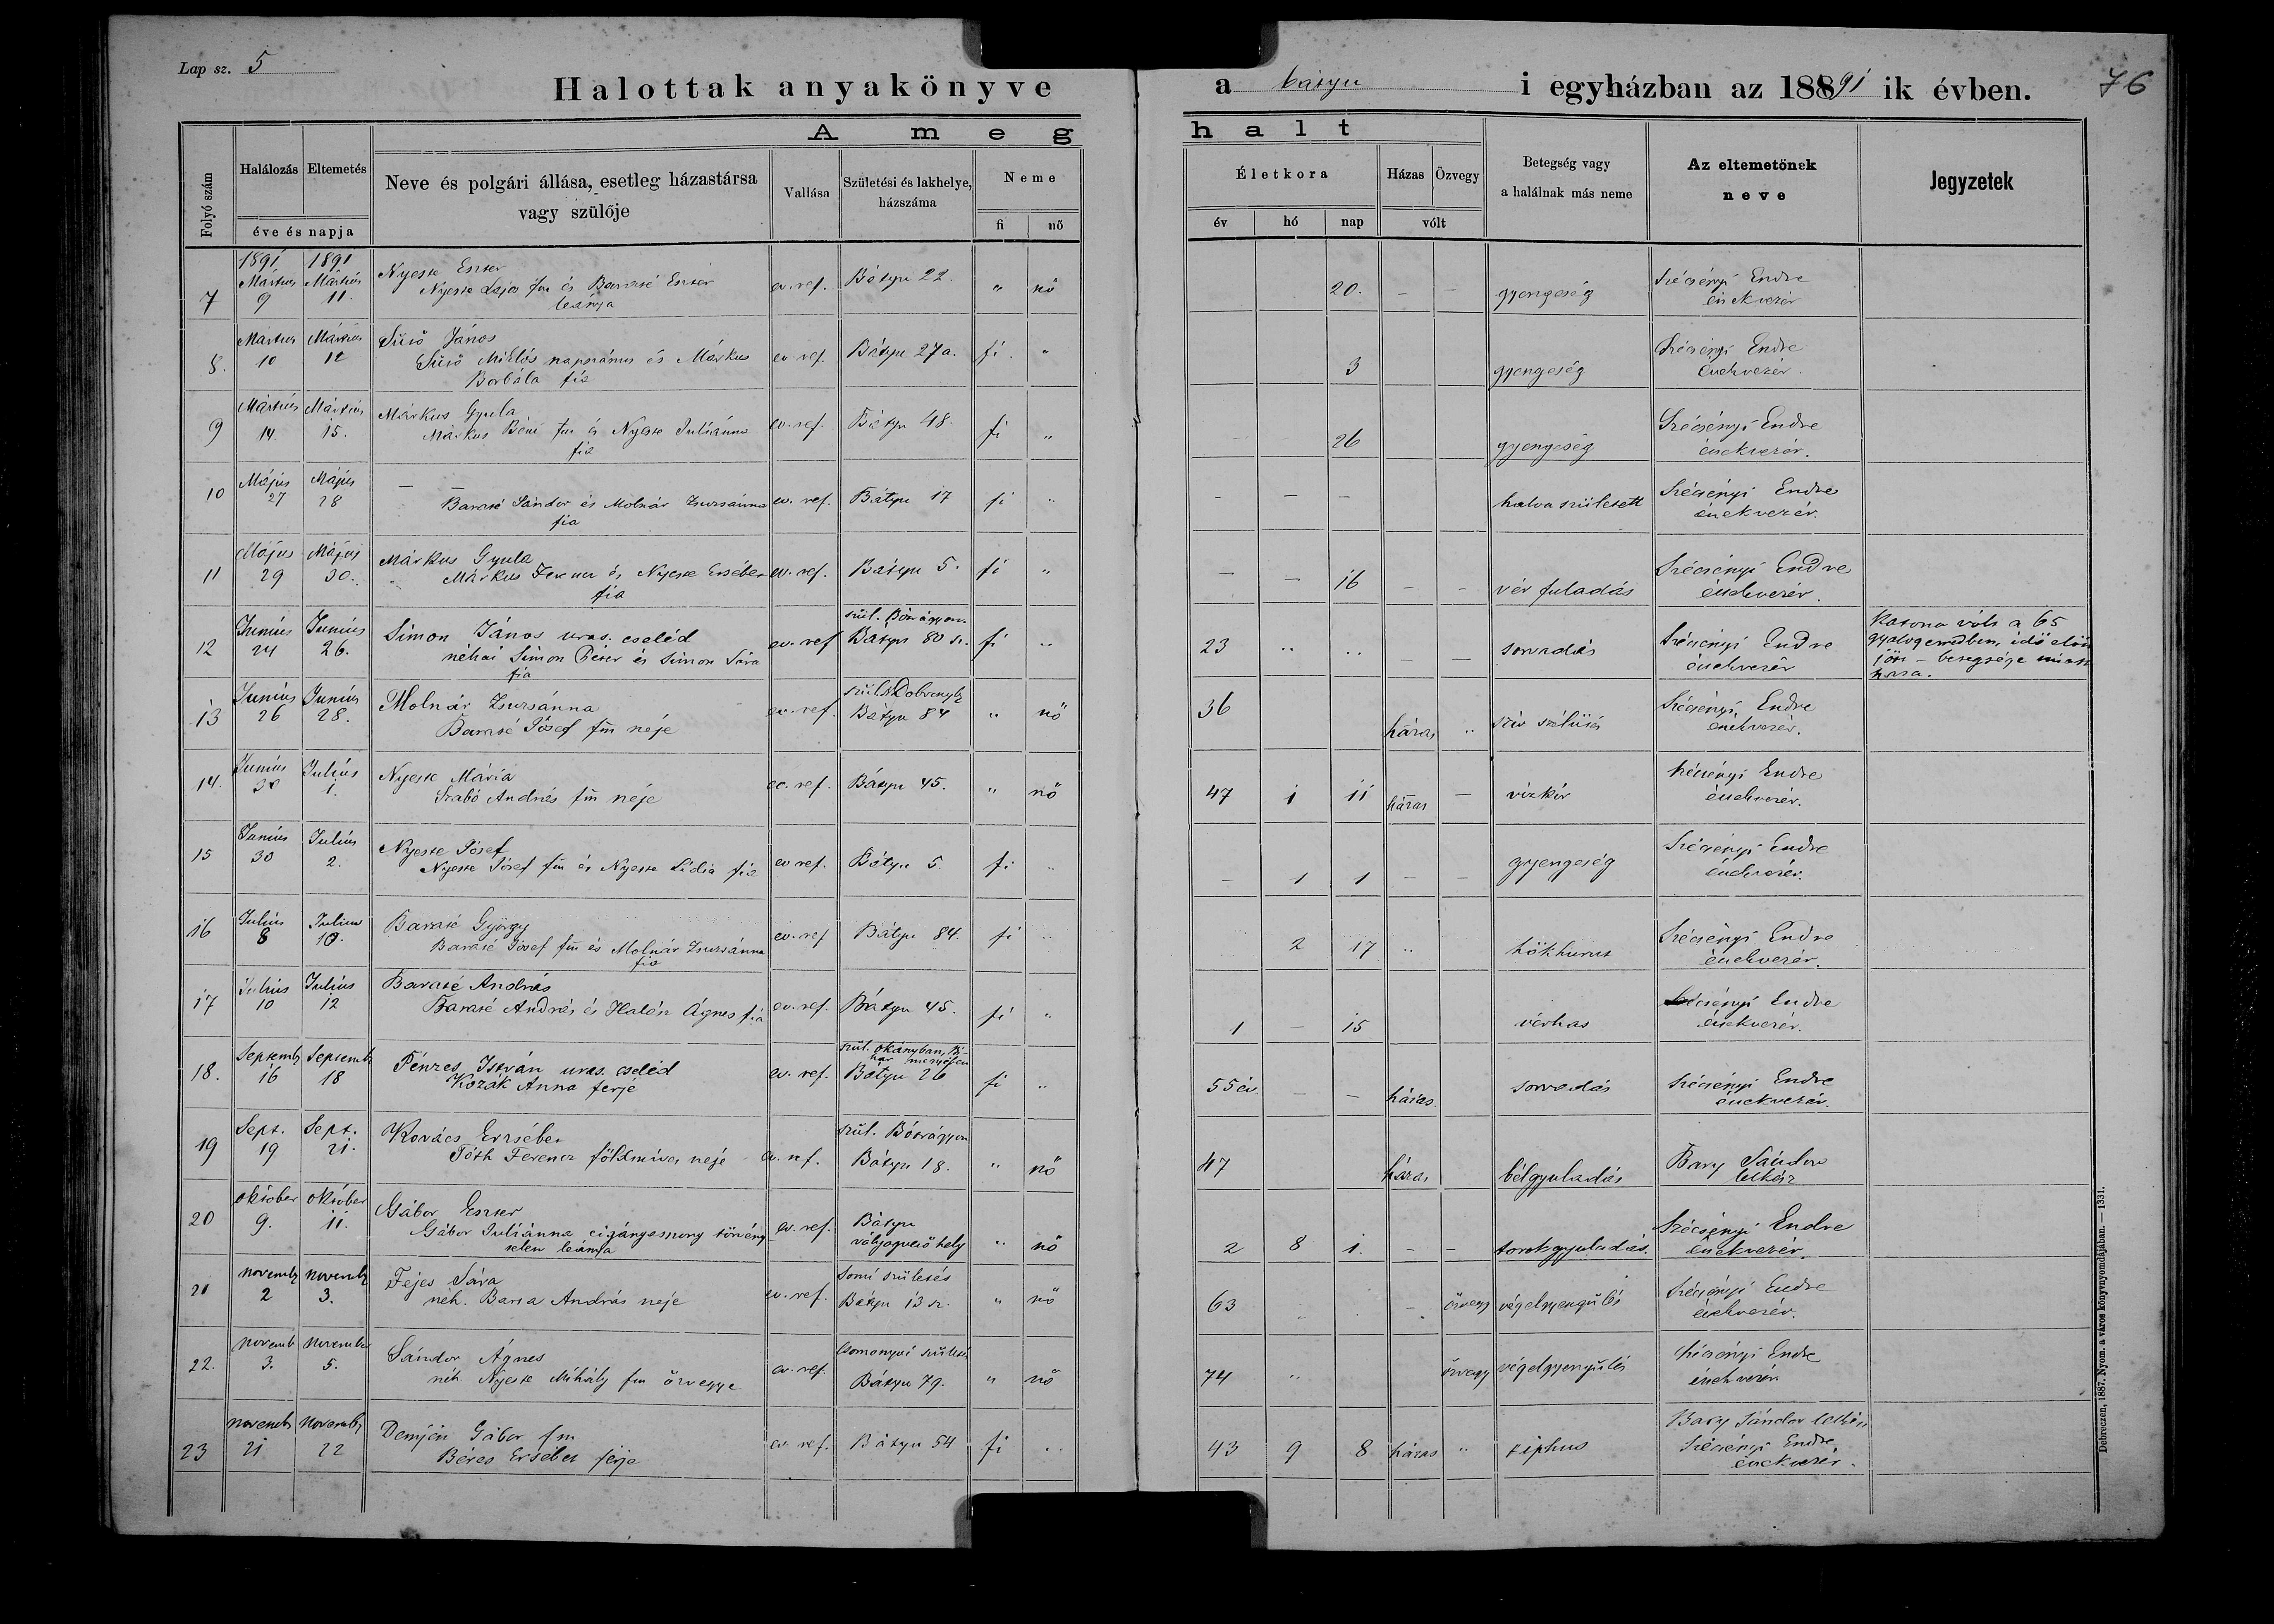 Lap sz. 5
Halottak anyakönyve
a bátyu i egyházban az 1891 ik évben.
76
A meg
halt
Folyó szám
Halálozás
Eltemetés
éve és napja
Neve és polgári állása, esetleg házastársa
vagy szülője
Vallása
Születési és lakhelye,
házszáma
Neme
fi
nő
Életkora
év
hó
nap
Házas
Özvegy
vólt
Betegség vagy
a halálnak más neme
Az eltemetőnek
neve
Jegyzetek
1891 1891
7 Mártius 9 Mártius 11. Nyeste Eszter
Nyeste Lajos fm és Eszter
leánya
ev. ref. Bátyu 22. " nő 20. – – gyengeség Szécsényi Endre
énekvezér
8. Mártius 10 Mártius 12 Sütő János
Sütő Miklós napszámos és Márkus
Borbála fia
ev ref. Bátyu 27a. fi. " 3 gyengeség Szécsényi Endre
énekvezér.
9 Mártius 14. Mártius 15. Márkus Gyula
Márkus Béni fm és Nyeste Juliánna
fia
ev. ref. Bátyu 48. fi " 26 gyengeség Szécsényi Endre
énekvezér.
10 Május 27 Május 28 – –
Sándor és Molnár Zsuzsánna
fia
ev. ref. Bátyu 17 fi " – – – halva született Szécsényi Endre
énekvezér.
11 Május 29 Május 30. Márkus Gyula
Márkus Ferencz és Nyeste Erzsébet
fia
ev. ref. Bátyu 5. fi " – – 16 – – vér fuladás Szécsényi Endre
énekvezér.
12 Junius 24 Junius 26. Simon János uras. cseléd
néhai Simon Péter és Simon Sára
fia
ev. ref szül.
Bátyu 80 sz. fi " 23 " " – – sorvadás Szécsényi Endre
énekvezér
Katona vólt a 65
gyalogezredben, idő előtt
jött – betegsége miatt
haza.
13 Junius 26 Junius 28. Molnár Zsuzsánna
Jósef fm neje
ev. ref. Bátyu 84 " nő 36 házas " szív szélütés Szécsényi Endre
énekvezér.
14. Junius 30 Julius 1. Nyeste Mária
Szabó András fm neje
ev. ref. Bátyu 45. " nő 47 1 11 házas – vízkór Szécsényi Endre
énekvezér.
15 Junius 30 Julius 2. Nyeste Jósef
Nyeste Jósef fm és Nyeste Lidia fia
ev ref. Bátyu 5. fi " – 1 1 – – gyengeség Szécsényi Endre
énekvezér.
16 Julius 8 Julius 10. György
Jósef fm és Molnár Zsuzsánna
fia
ev. ref Bátyu 84. fi " 2 17 " hökhurut Szécsényi Endre
énekvezér.
17 Julius 10 Julius 12 András
András és Halász Ágnes fia
ev. ref. Bátyu 45. fi " 1 – 15 vérhas Szécsényi Endre
énekvezér.
18. Septemb 16 Septemb 18 Pénzes István uras. cseléd
Kozák Anna férje
ev. ref. szül. Okányban,
Bátyu 26 fi " 55 év. – – házas. sorvadás Szécsényi Endre
énekvezér.
19 Sept. 19 Sept. 21. Kovács Erzsébet
Tóth Ferencz földmíves neje
ev. ref. szül.
Bátyu 18. " nő 47 házas bélgyuladás Bary Sándor
lelkész
20 október 9. október 11. Gábor Eszter
Gábor Juliánna czigányasszony törvény
telen leánya
ev. ref. Bátyu
vályogvető hely " nő 2 8 1. – – torokgyuladás. Szécsényi Endre
énekvezér.
21 novemb 2 novemb 3. Fejes Sára
néh. Barta András neje
ev. ref. Somi születés
Bátyu 13 sz. " nő 63 – özvegy végelgyengülés Szécsényi Endre
énekvezér.
22. novemb 3. november 5. Sándor Ágnes
néh. Nyeste Mihály fm özvegye
ev. ref. Csomonyai születés
Bátyu 79. " nő 74 " özvegy végelgyengülés Szécsényi Endre
énekvezér
23 novemb 21 novemb 22 Demjén Gábor fm
Béres Erzsébet férje
ev. ref. Bátyu 54 fi " 43 9 8 házas " tiphus Bary Sándor lelkész
Szécsényi Endre
énekvezér.
Debreczen, 1887. Nyom. a város könyvnyomdájában. — 1331.